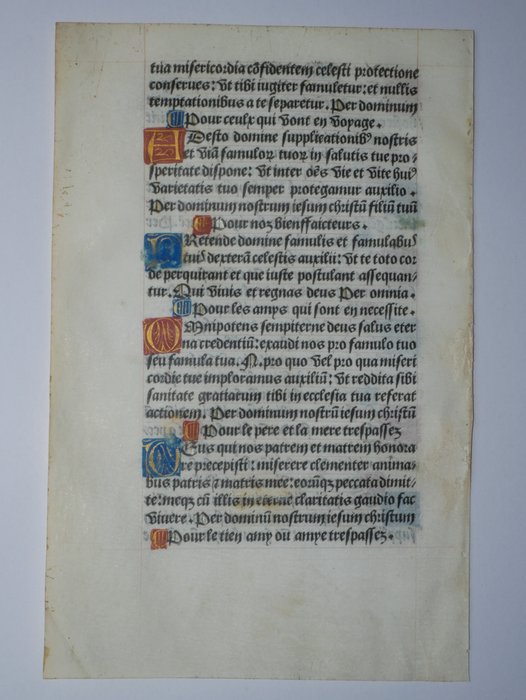 tua misericordia cõfidentem celesti protectione
conserues: Ut tibi iugiter famuletur: et nullis
temptationibus a te separetur. Per dominum
Pour ceulx qui vont en voyage.
Adesto domine supplicationibꝰ nostris
et viã famulor̃ tuor̃ in salutis tue pro-
speritate dispone: Ut inter oẽs vie et vite huiꝰ
varietatis tuo semper protegamur auxilio.
Per dominum nostrum iesum christũ filiũ tuũ
Pour noz bienffaicteurs.
PRetende domine famulis et famulabꝰ
tuiˢ dexterã celestis auxilii: ut te toto cor
de perquirant et que iuste postulant assequan-
tur. Qui vinis et regnas deus Per omnia.
Pour les amys qui sont en necessite.
OMnipotens sempiterne deus salus eter
na credentiũ: exaudi nos pro famulo tuo
seu famula tua. N. pro quo vel pro qua miseri
cordie tue imploramus auxiliũ: Ut reddita sibi
sanitate gratiarum tibi in ecclesia tua referat
actionem. Per dominum nostrũ iesum christũ
Pour le pere et la mere trespassez
DEus qui nos patrem et matrem honora
re precepisti: miserere clementer anima-
bus patris ⁊ matris mee: eorũqz peccata dimit-
te: meqz cũ illis in eterne claritatis gaudio fac
vivere. Per dominũ nostrum iesum christum
Pour le tien amy ou amye trespassez.